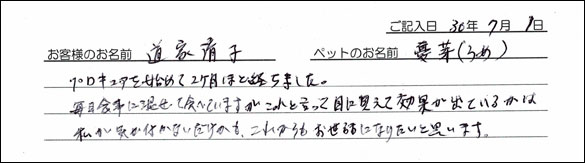 ご記入日 30年 7月 1日
お客様のお名前 道家 ペットのお名前 夢芽(ゆめ)
プロキュアを始めて2ヶ月ほど経ちました。
毎日食事に混ぜて食べていますがこれと言って目に見えて効果が出ているかは
私が気が付かないだけかも、これからもお世話になりたいと思います。